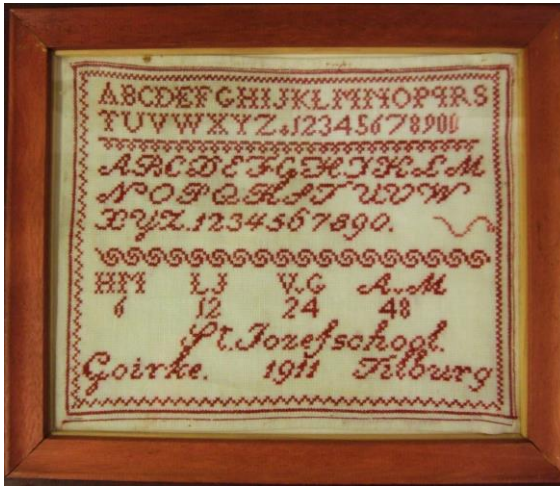 ABCDEFGHIJKLMNOPQRS
TUVWXYZ.1234567890
ABCDEFGHIJKLM
NOPQRSTUVW
XYZ.1234567890.
HM LJ V.G A.M
6 12 24 48
St. Jozefschool.
Goirke. 1911 Tilburg